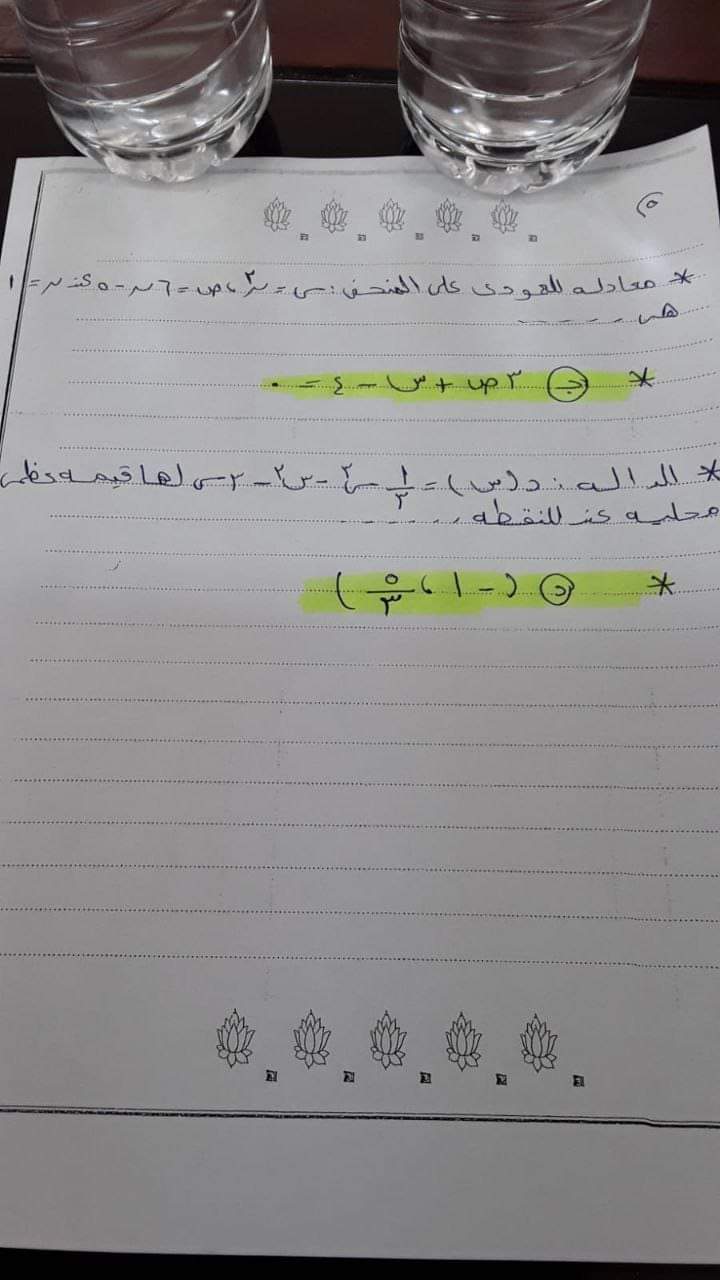 ٥
* معادله العمودى على المنحنى : س = ن٢ ، ص = ٦ن - ٥ عند ن = ١
هى - - - - -
* (جـ) ٣ص + س - ٤ = ٠
* الدالة : د (س) = ١/٣ س٣ - س٢ - ٣س لها قيمه عظمى
محليه عند النقطه . - - - -
* (د) (- ١ ، ٥/٣)